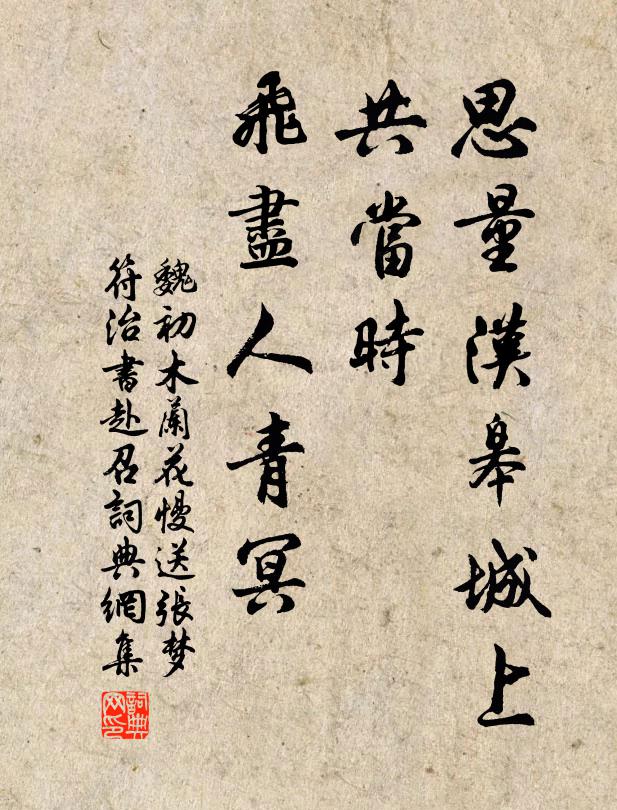 思量漢皋城上
共當時
飛盡人青冥
魏初木蘭花慢送張梦
符治書赴召詞典網集
詞典
网印